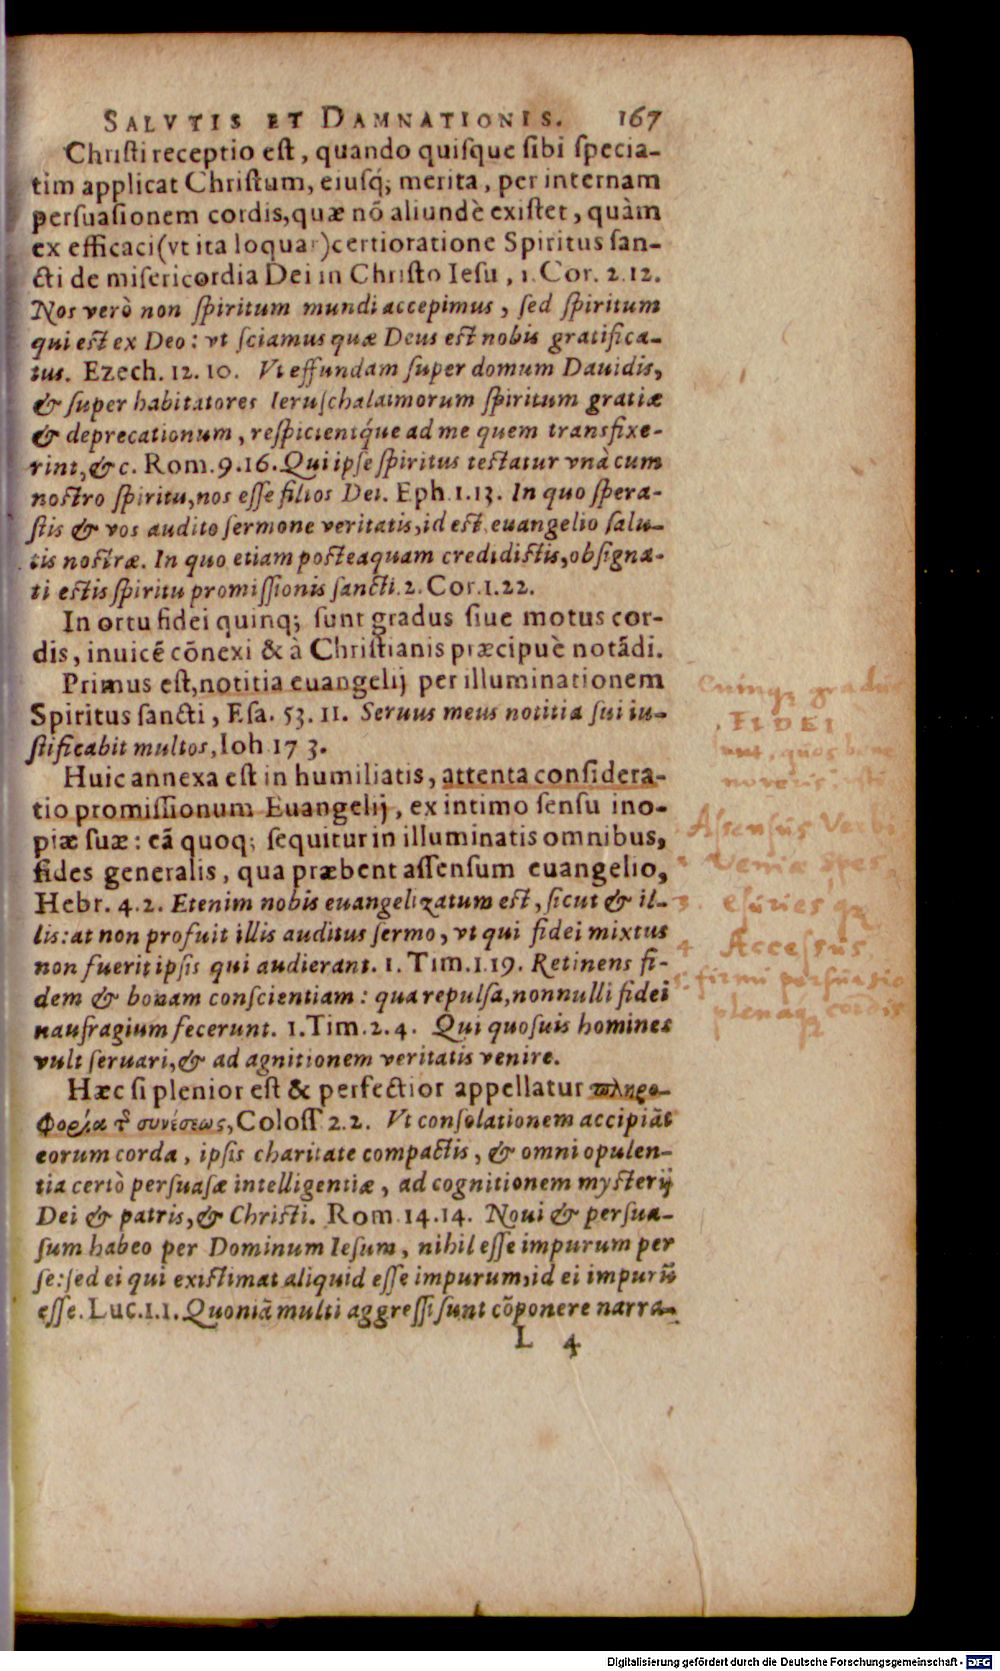 SALVTIS ET DAMNATIONIS. 167
Christi receptio est, quando quisque sibi specia-
tim applicat Christum, eiusq́; merita, per internam
persuasionem cordis, quæ nō aliundè existet, quàm
ex efficaci (vt ita loquar) certioratione Spiritus san-
cti de misericordia Dei in Christo Iesu, 1. Cor. 2.12.
Nos verò non spiritum mundi accepimus, sed spiritum
qui est ex Deo: vt sciamus quæ Deus est nobis gratifica-
tus. Ezech. 12. 10. Vt effundam super domum Dauidis,
& super habitatores Ieruschalaimorum spiritum gratiæ
& deprecationum, respicientq́ue ad me quem transfixe-
rint, &c. Rom. 9.16. Qui ipse spiritus testatur vnà cum
nostro spiritu, nos esse filios Dei. Eph. 1.13. In quo spera-
stis & vos audito sermone veritatis, id est euangelio salu-
tis nostræ. In quo etiam posteaquam credidistis, obsigna-
ti estis spiritu promissionis sancti. 2. Cor. 1.22.
In ortu fidei quinq; sunt gradus siue motus cor-
dis, inuicē cōnexi & à Christianis præcipuè notādi.
Primus est, notitia euangelij per illuminationem
Spiritus sancti, Esa. 53. 11. Seruus meus notitia sui iu-
stificabit multos, Ioh 17 3.
Huic annexa est in humiliatis, attenta considera-
tio promissionum Euangelij, ex intimo sensu ino-
piæ suæ: eā quoq; sequitur in illuminatis omnibus,
fides generalis, qua præbent assensum euangelio,
Hebr. 4.2. Etenim nobis euangelizatum est, sicut & il-
lis: at non profuit illis auditus sermo, vt qui fidei mixtus
non fuerit ipsis qui audierant. 1. Tim. 1.19. Retinens fi-
dem & bonam conscientiam: qua repulsa, nonnulli fidei
naufragium fecerunt. 1. Tim. 2.4. Qui quosuis homines
vult seruari, & ad agnitionem veritatis venire.
Hæc si plenior est & perfectior appellatur πληρο-
φορία τ͂ συνέσεως, Coloss 2.2. Vt consolationem accipiāt
eorum corda, ipsis charitate compactis, & omni opulen-
tia certò persuasæ intelligentiæ, ad cognitionem mysterij
Dei & patris, & Christi. Rom. 14.14. Noui & persua-
sum habeo per Dominum Iesum, nihil esse impurum per
se: sed ei qui existimat aliquid esse impurum, id ei impurū
esse. Luc. 1.1. Quoniā multi aggressi sunt cōponere narra-
L 4
gradus
FIDEI
sunt, quos bene
noveris
Assensus Verbi
Veniæ Spes
3. Esuries
4 Accessus
5. firmi persuasio
cordis
Digitalisierung gefördert durch die Deutsche Forschungsgemeinschaft - DFG